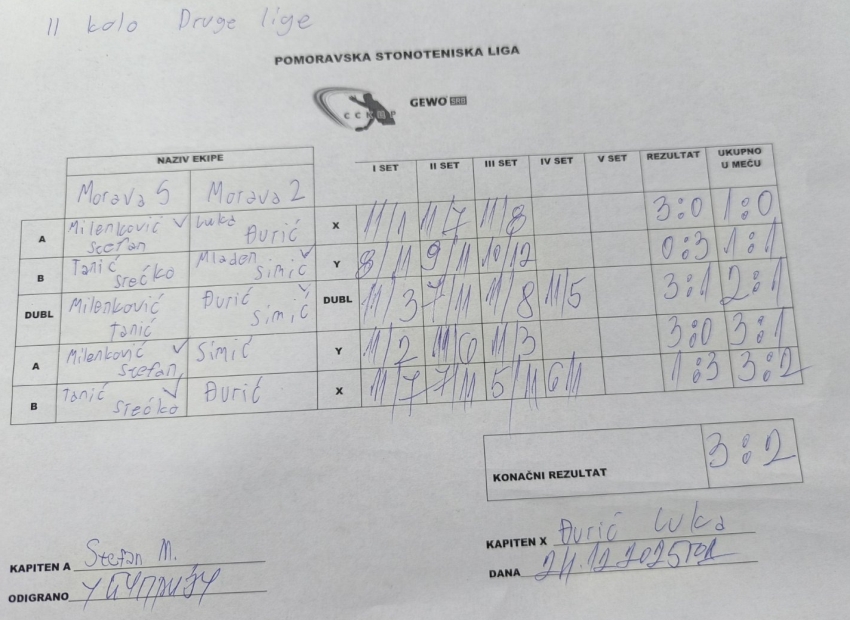 II kolo Druge lige
POMORAVSKA STONOTENISKA LIGA
GEWO SRB
NAZIV EKIPE I SET II SET III SET IV SET V SET REZULTAT UKUPNO U MEČU
Morava 5 Morava 2
A Milenković Stefan ✓ Luka Đurić X 11/1 11/7 11/8 3:0 1:0
B Tanić Srećko Mladen Simić ✓ Y 8/11 9/11 10/12 0:3 1:1
DUBL Milenković Tanić Đurić Simić ✓ DUBL 11/3 7/11 11/8 11/5 3:1 2:1
A Milenković Stefan ✓ Simić Y 11/2 11/6 11/3 3:0 3:1
B Tanić Srećko ✓ Đurić X 11/7 7/11 5/11 6/11 1:3 3:2
KONAČNI REZULTAT 3:2
KAPITEN A Stefan M.
KAPITEN X Đurić Luka
ODIGRANO
DANA